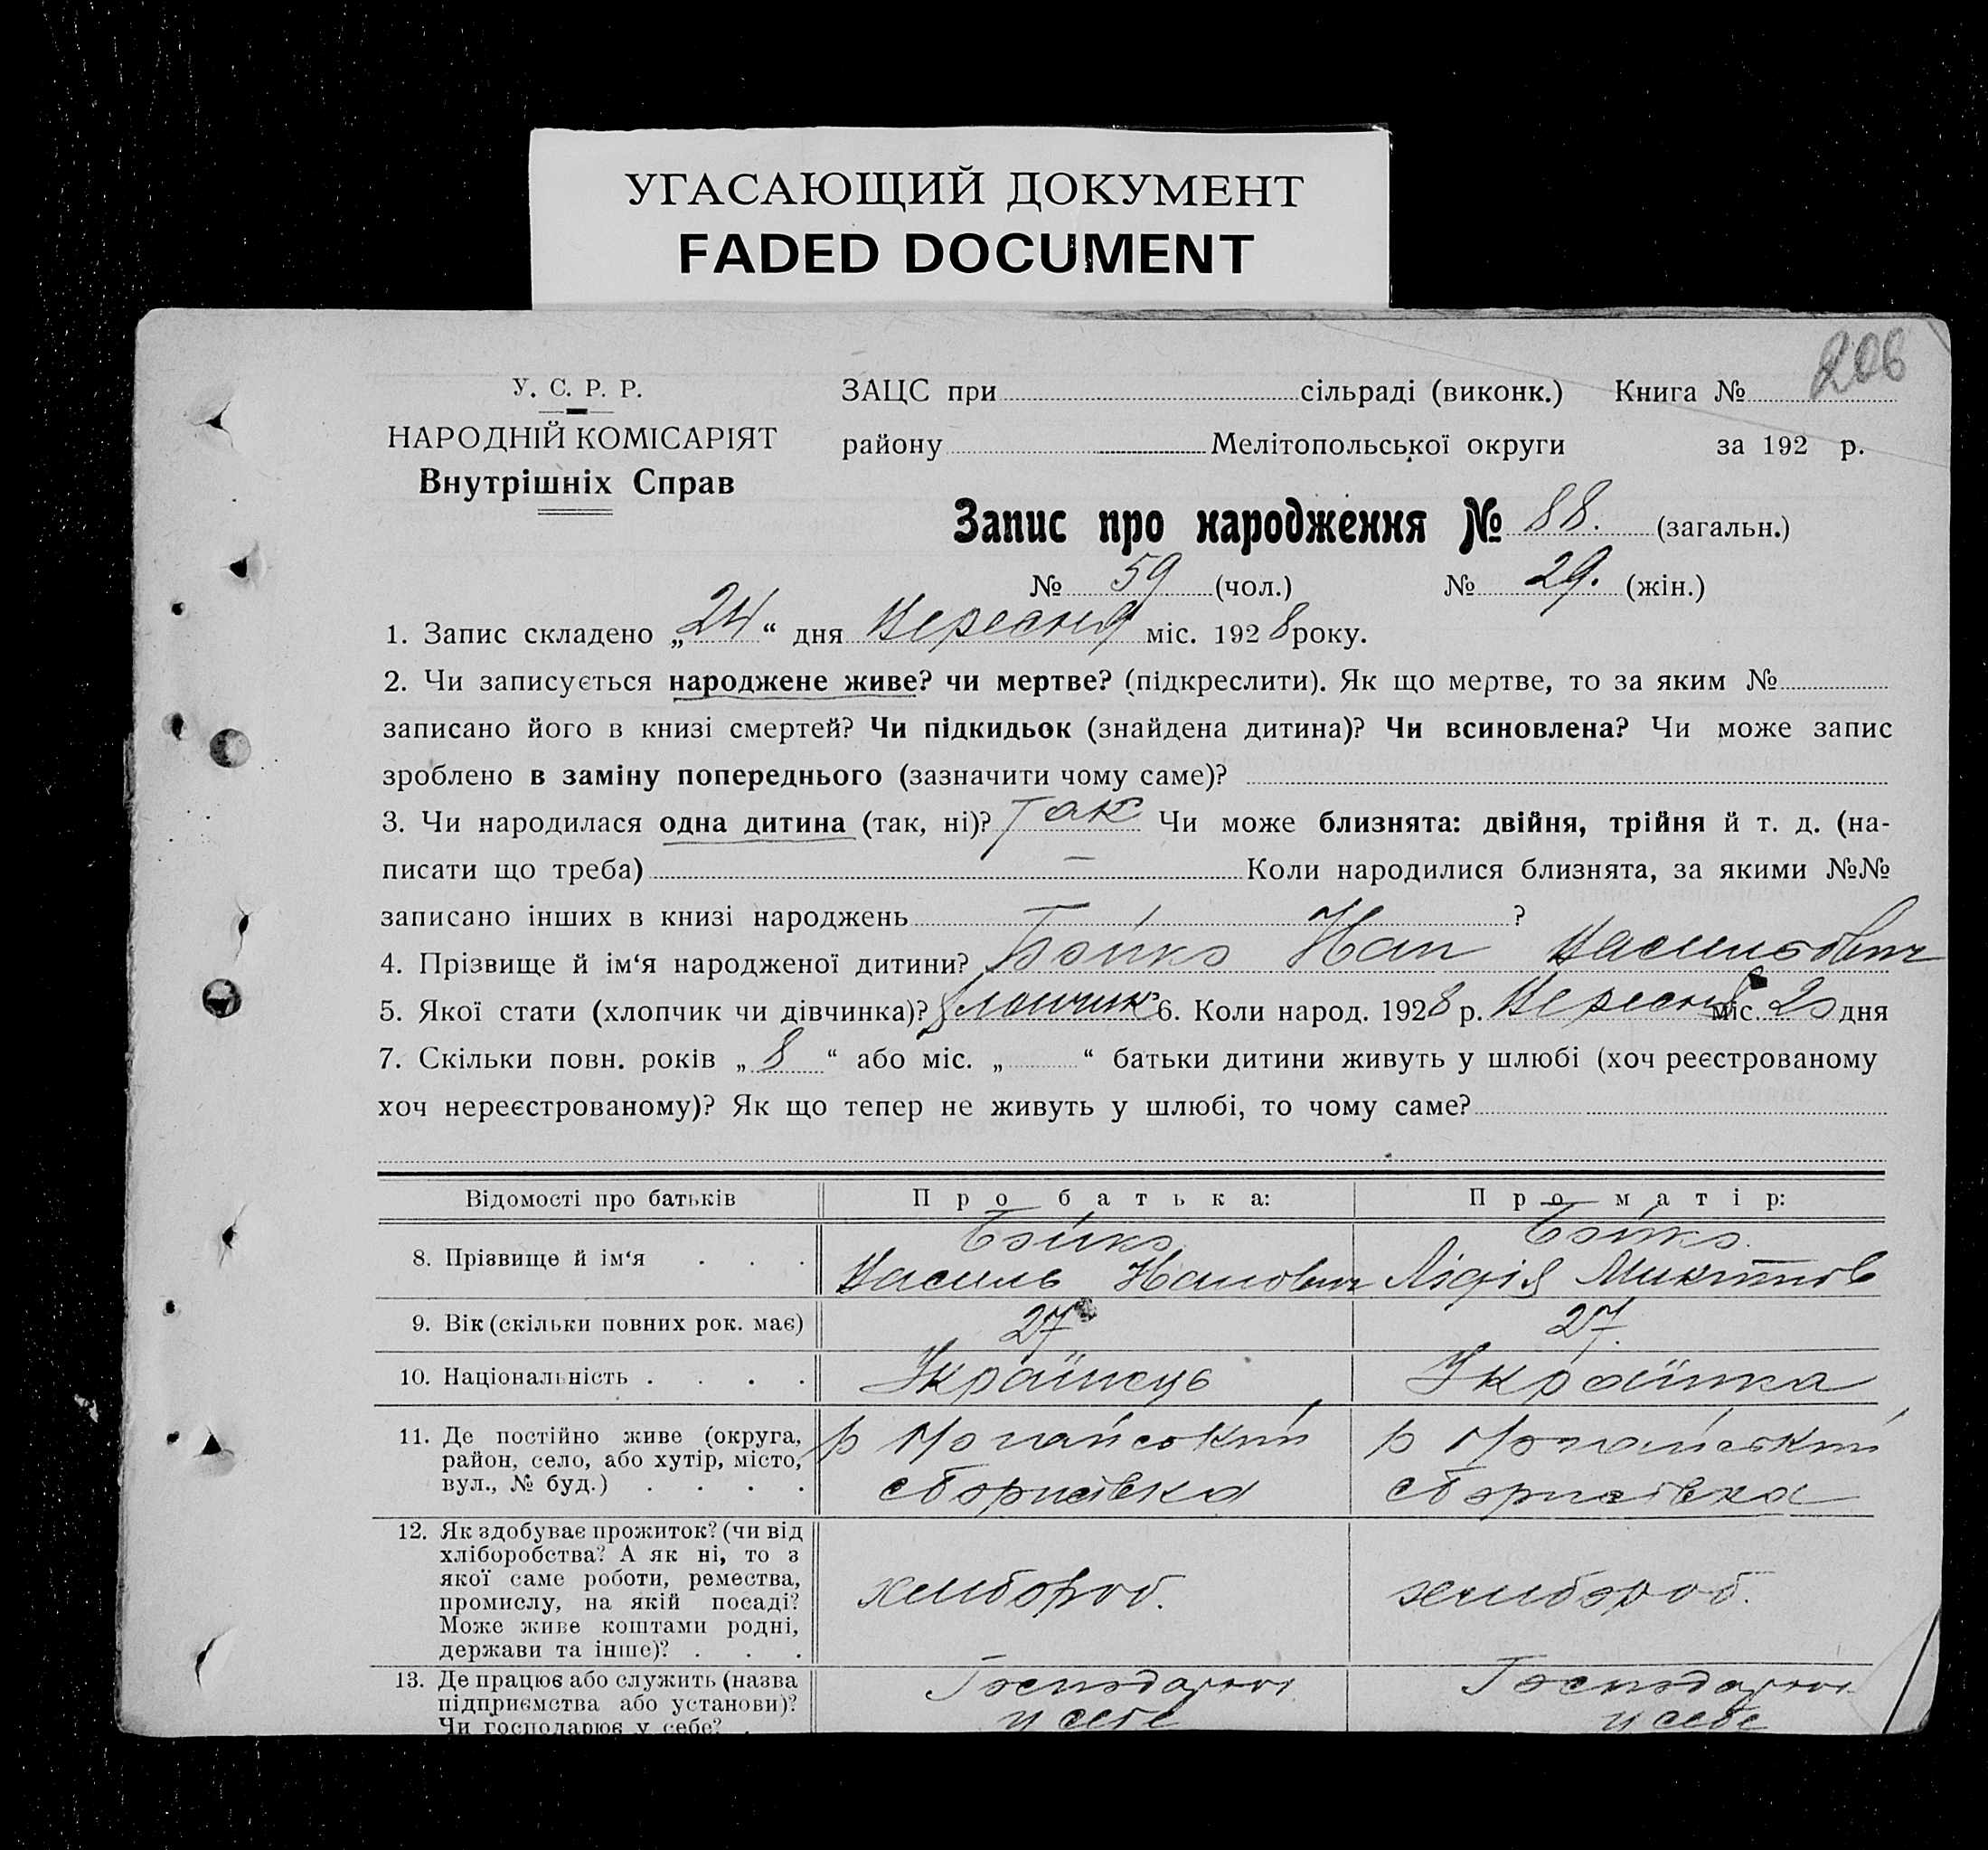 УГАСАЮЩИЙ ДОКУМЕНТ
FADED DOCUMENT
206
У. С. Р. Р.
НАРОДНІЙ КОМІСАРІЯТ
Внутрішніх Справ
ЗАЦС при сільраді (виконк.) Книга №
району Мелітопольської округи за 192 р.
Запис про народження № 88. (загальн.)
№ 59 (чол.) № 29. (жін.)
1. Запис складено „24“ дня Вересня міс. 1928 року.
2. Чи записується народжене живе? чи мертве? (підкреслити). Як що мертве, то за яким №
записано його в книзі смертей? Чи підкидьок (знайдена дитина)? Чи всиновлена? Чи може запис
зроблено в заміну попереднього (зазначити чому саме)?
3. Чи народилася одна дитина (так, ні)? Так Чи може близнята: двійня, трійня й т. д. (на-
писати що треба) — Коли народилися близнята, за якими №№
записано інших в книзі народжень ?
4. Прізвище й ім‘я народженої дитини? Бойко Іван Васильович
5. Якої стати (хлопчик чи дівчинка)? Хлопчик 6. Коли народ. 1928 р. Вересня міс. 20 дня
7. Скільки повн. років „8“ або міс. „ “ батьки дитини живуть у шлюбі (хоч реєстрованому
хоч нереєстрованому)? Як що тепер не живуть у шлюбі, то чому саме?
Відомості про батьків Про батька: Про матір:
8. Прізвище й ім‘я . . . Бойко Бойко
Василь Іванович Лідія Микитов
9. Вік (скільки повних рок. має) 27 27.
10. Національність . . . . Українець Українка
11. Де постійно живе (округа,
район, село, або хутір, місто,
вул., № буд.) . . . .
с Борисівка с Борисівка
12. Як здобуває прожиток? (чи від
хліборобства? А як ні, то з
якої саме роботи, ремества,
промислу, на якій посаді?
Може живе коштами родні,
держави та інше)? . . .
хлибороб. хлибороб.
13. Де працює або служить (назва
підприємства або установи)?
Чи господарює у себе? .
у себе у себе